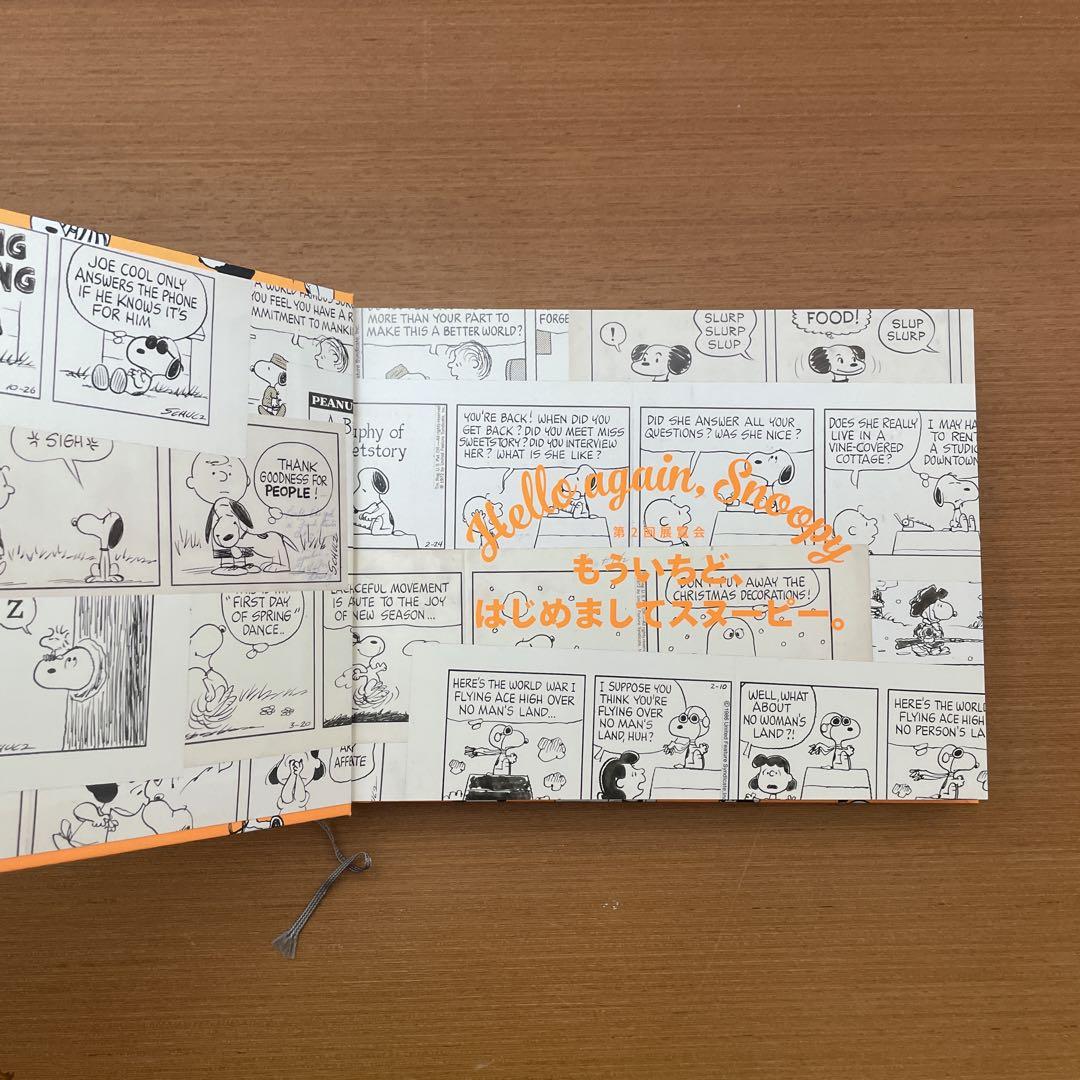 NG
NG
JOE COOL ONLY
ANSWERS THE PHONE
IF HE KNOWS IT'S
FOR HIM
10-26
SCHULZ
A WORLD FAMOUS
YOU FEEL YOU HAVE A
MMITMENT TO MANKI
MORE THAN YOUR PART TO
MAKE THIS A BETTER WORLD?
FORGE
!
SLURP
SLURP
SLUP
FOOD!
SLUP
SLURP
* SIGH *
THANK
GOODNESS FOR
PEOPLE!
SCHULZ
PEANU
phy of
etstory
2-24
YOU'RE BACK! WHEN DID YOU
GET BACK? DID YOU MEET MISS
SWEETSTORY? DID YOU INTERVIEW
HER? WHAT IS SHE LIKE?
DID SHE ANSWER ALL YOUR
QUESTIONS? WAS SHE NICE?
DOES SHE REALLY
LIVE IN A
VINE-COVERED
COTTAGE?
I MAY HA
TO RENT
A STUDIO
DOWNTOWN
Hello again, Snoopy
第2回展覧会
もういちど、
はじめましてスヌーピー。
Z
"FIRST DAY
OF SPRING"
DANCE..
3-20
ACEFUL MOVEMENT
IS A UTE TO THE JOY
OF NEW SEASON...
DON'T PUT AWAY THE
CHRISTMAS DECORATIONS!
HERE'S THE WORLD WAR I
FLYING ACE HIGH OVER
NO MAN'S LAND...
I SUPPOSE YOU
THINK YOU'RE
FLYING OVER
NO MAN'S
LAND, HUH?
2-10
© 1986 United Feature Syndicate, Inc.
WELL, WHAT
ABOUT
NO WOMAN'S
LAND?!
HERE'S THE WORLD
FLYING ACE HIGH
NO PERSON'S LA
AFFETE